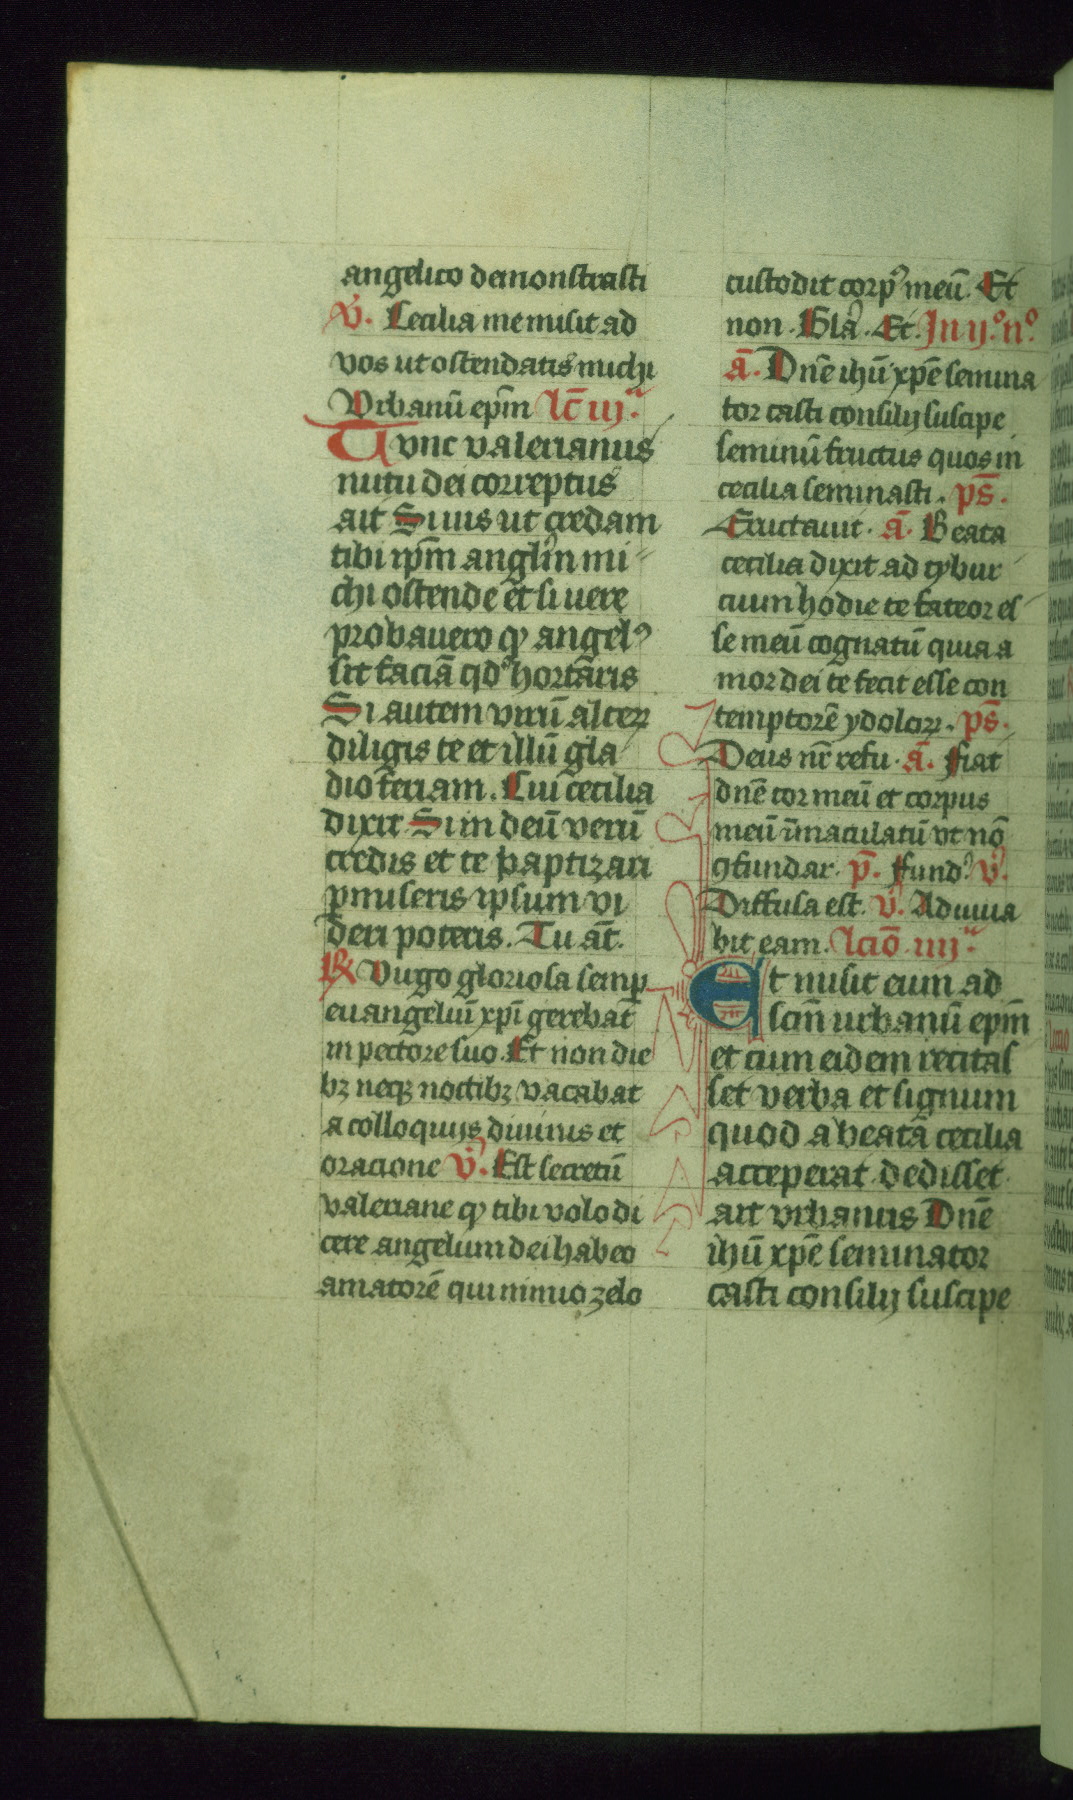 angelico demonstrasti
V̉. Cecilia me misit ad
vos ut ostendatis michi
Vrbanū ep̄m lc̄ iijª.
Tvnc valerianus
nutu dei correptus
ait Si uis ut credam
tibi ip̄m angl̄m mi
chi ostende et si uere
probauero qͥ angelꝰ
sit faciā qdͦ hortāris
Si autem virū alterꝝ
diligis te et illū gla
dio feriam. Cui cecilia
dixit Si in deū verū
credis et te baptizari
ꝑmiseris ipsum vi
deri poteris. Tu āt.
℟ Virgo gloriosa semꝑ
euangeliū xp̄i gerebat
in pectore suo. Et non die
bꝫ neqꝫ noctibꝫ vacabat
a colloquijs diuinis et
oracione V̉. Est secretū
valeriane qͥ tibi volo di
cere angelum dei habeo
amatorē qui nimio zelo
custodit corpꝰ meū. Et
non. Gl̄a. Et. Jn ijͦ. nͦ
ā. Dn̄e ih̄u xp̄e semina
tor casti consilij suscipe
seminū fructus quos in
cecilia seminasti. pš.
Eructauit. ā. Beata
cecilia dixit ad tybur
cium hodie te fateor es
se meū cognatū quia a
mor dei te fecit esse con
temptorē ydoloꝝ. pš.
Deus nr̄ refu. ā. Fiat
dn̄e cor meū et corpus
meū īmaculatū vt nō
ꝯfundar. p̄. Fundꝰ. v̉.
Diffusa est. v̉. Adiuua
bit eam. lc̄io iiijª.
Et misit eum ad
sc̄m urbanū ep̄m
et cum eidem recitas
set verba et signum
quod a beata cecilia
acceperat dedisset
ait vrbanus Dn̄e
ih̄u xp̄e seminator
casti consilij suscipe